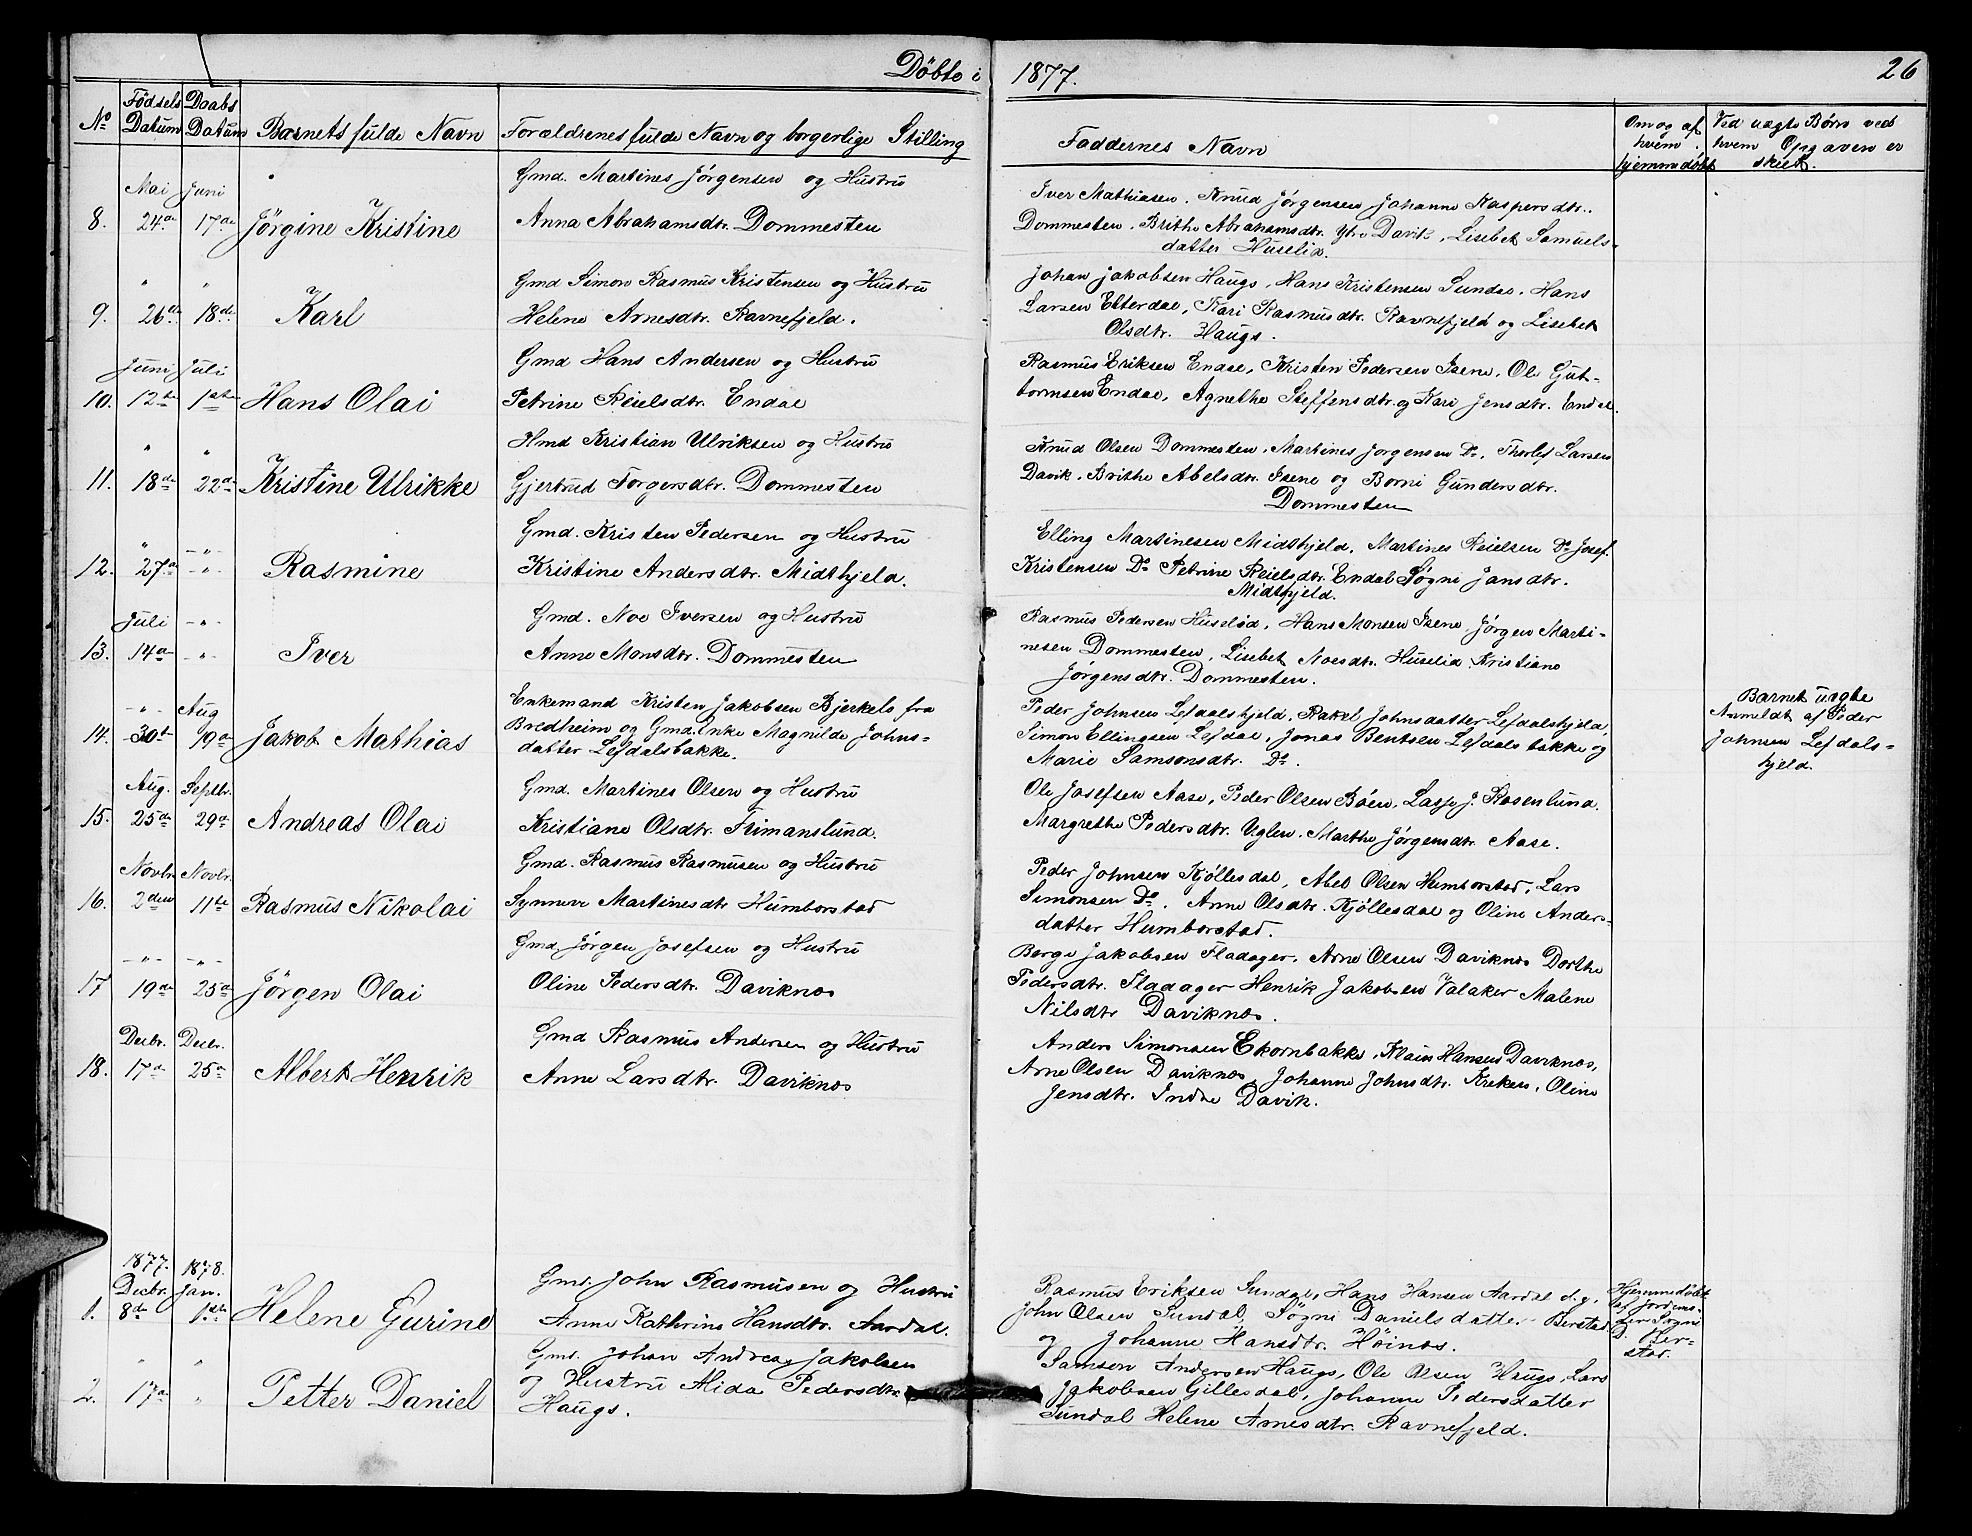 Döbte i 1877. 26
No Fødsels Datum Daabs Datum Barnets fulde Navn Forældrenes fulde Navn og borgerlige Stilling Faddernes Navn Om og af hvem hjemmedøbt Ved uægte Børn ved hvem Opgaven er skeet.
Mai Juni Gmd. Martines Jörgensen og Hustru
8. 24de 17de Jörgine Kristine Anna Abrahamsdtr. Dommesten
Iver Mathiasen. Knud Jörgensen Johanne Kaspersdtr.
Dommesten. Brithe Abrahamsdtr. Ytre Davik, Lisebet Samuels-
datter Huselid.
" " Gmd Simon Rasmus Kristensen og Hustru
9. 26de 18de Karl Helene Arnesdtr. Ravnefjeld.
Johan Jakobsen Haugs, Hans Kristensen Sundal. Hans
Larsen Etterdal, Kari Rasmusdtr. Ravnefjeld og Lisebet
Olsdtr. Haugs.
Juni Juli Gmd Hans Andersen og Hustru
10. 12te 1ste Hans Olai Petrine Reielsdtr. Endal
Rasmus Eriksen Endal, Kristen Pedersen Isene, Ole Gut-
tormsen Endal, Agnethe Steffensdtr. og Kari Jensdtr. Endal.
" " Hmd Kristian Ulriksen og Hustru
11. 18de 22de Kristine Ulrikke Gjertrud Torgersdtr. Dommesten
Knud Olsen Dommesten, Martines Jörgensen Do, Thorlef Larsen
Davik, Brithe Abelsdtr. Isene og Borni Gundersdtr.
Dommesten
" -"- Gmd. Kristen Pedersen og Hustru
12. 27de -"- Rasmine Kristine Andersdtr. Midthjeld.
Elling Martinesen Midthjeld, Martines Reielsen Do Josef
Kristensen Do Petrine Reielsdtr. Endal Sögni Jansdtr.
Midthjeld.
Juli -"- Gmd. Noe Iversen og Hustru
13. 14de -"- Iver Anne Monsdtr. Dommesten
Rasmus Pedersen Huselid, Hans Monsen Isene, Jörgen Marti-
nesen Dommesten, Lisebet Noesdtr. Huselid Kristiane
Jörgensdtr. Dommesten.
-"- Aug Enkemand Kristen Jakobsen Bjerkelo fra
14. 30te 19de Jakob Mathias Bredheim og Gmd.Enke Magnilde Johns-
datter Lefdalsbakke.
Peder Johnsen Lefdalshjeld, Rakel Johnsdatter Lefdalshjeld,
Simon Ellingsen Lefdal, Jonas Bentsen Lefdalsbakke og
Marie Samsonsdtr. Do.
Barnet uægte
Anmeldt af Peder
Johnsen Lefdals-
hjeld.
Aug. Septbr. Gmd. Martines Olsen og Hustru
15. 25de 29de Andreas Olai Kristiane Olsdtr. Frimanslund.
Ole Josefsen Aase, Peder Olsen Böen, Lasse J. Rosenlund.
Margrethe Pedersdtr. Uglen. Marthe Jörgensdtr. Aase.
Novbr. Novbr. Gmd. Rasmus Rasmusen og Hustru
16. 2den 11te Rasmus Nikolai Synneve Martinesdtr Humborstad
Peder Johnsen Kjöllesdal, Abel Olsen Humborstad, Lars
Simonsen Do. Anne Olsdtr. Kjöllesdal og Oline Anders-
datter Humborstad.
-"- -"- Gmd. Jörgen Josefsen og Hustru
17 19de 25de Jörgen Olai Oline Pedersdtr. Daviknes
Berge Jakobsen Fladager, Arne Olsen Daviknes Dorthe
Pedersdtr. Fladager Henrik Jakobsen Valaker Malene
Nilsdtr Daviknes.
Decbr. Decbr. Gmd Rasmus Andersen og Hustru
18. 17de 25de Albert Henrik Anne Larsdtr. Daviknes
Anders Simonsen Ekornbakke, Klaus Hansen Daviknes,
Arne Olsen Daviknes, Johanne Johnsdtr. Kreken, Oline
Jensdtr. Indre Davik.
1877. 1878.
Decbr. Jan. Gmd. John Rasmusen og Hustru
1. 8de 1ste Helene Gurine Anne Kathrine Hansdtr. Aardal.
Rasmus Eriksen Sundal, Hans Hansen Aardal d.y.
John Olsen Sundal, Sögni Danielsdatter Berstad
og Johanne Hansdtr. Höinæs.
Hjemmedöbt
af Jordemo-
der Sögni
D. Ber-
stad.
" " Gmd. Johan Andreas Jakobsen
2. 17de " Petter Daniel og Hustru Alida Pedersdtr.
Haugs.
Samson Andersen Haugs, Ole Olsen Haugs, Lars
Jakobsen Gillesdal, Johanne Pedersdatter
Sundal Helene Arnesdtr. Ravnefjeld.